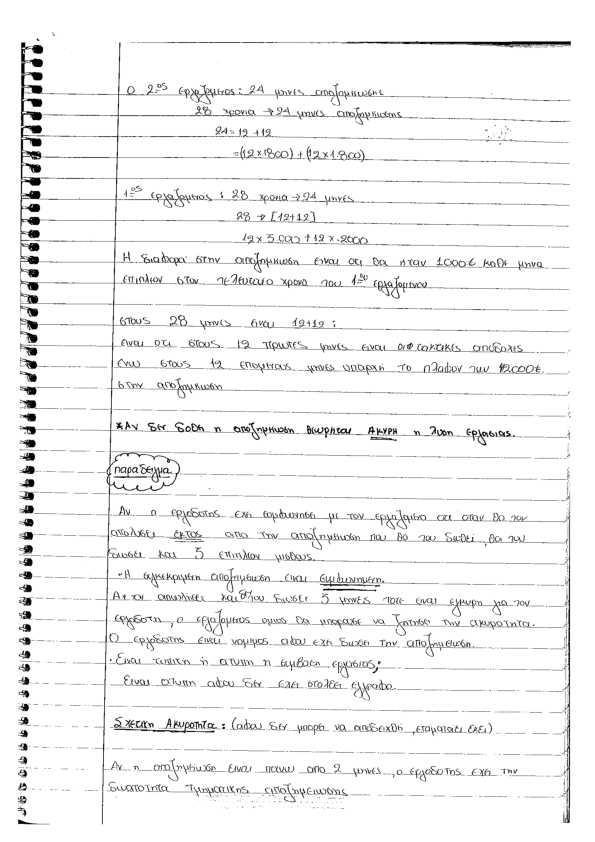 Ο 2ος εργαζομενος: 24 μηνες αποζημιωσης
28 χρονια → 24 μηνες αποζημιωσης
24 = 12 + 12
= (12 × 1800) + (12 × 1.800)
1ος εργαζομενος : 28 χρονια → 24 μηνες
28 → [12+12]
12 × 3.000 + 12 × 2000
Η διαφορα στην αποζημιωση ειναι οτι θα ηταν 1000€ καθε μηνα
επιπλεον στον τελευταιο χρονο του 1ου εργαζομενου
στους 28 μηνες ειναι 12+12 :
ειναι οτι στους 12 πρωτες μηνες ειναι οι τακτικες αποδοχες
ενω στους 12 επομενους μηνες υπαρχη το πλαφον των 2000€.
στην αποζημιωση
*Αν δεν δοθει η αποζημιωση θεωρηται ΑΚΥΡΗ η λυση εργασιας.
παραδειγμα
Αν ο εργοδοτης εχει συμφωνησει με τον εργαζομενο οτι οταν θα τον
απολυσει ΕΚΤΟΣ απο την αποζημιωση που θα του δωθει , θα του
δωσει και 5 επιπλεον μισθους.
·Η συγκεκριμενη αποζημιωση ειναι συμφωνημενη.
Αν τον απολυσει και του δωσει 5 μηνες τοτε ειναι εγκυρη για τον
εργοδοτη , ο εργαζομενος ομως θα μπορουσε να ζητησει την ακυροτητα.
Ο εργοδοτης ειναι νομιμος αφου εχει δωσει την αποζημειωση.
·Ειναι τυπικη ή ατυπη η συμβαση εργασιας;
Ειναι ατυπη αφου δεν εχει σταλθει εγγραφα.
Σχετικη Ακυροτητα : (αφου δεν μπορει να αποδειχθει ,σταματαει εκει)
Αν η αποζημειωση ειναι πανω απο 2 μηνες , ο εργοδοτης εχει την
δυνατοτητα τμηματικης αποζημειωσης